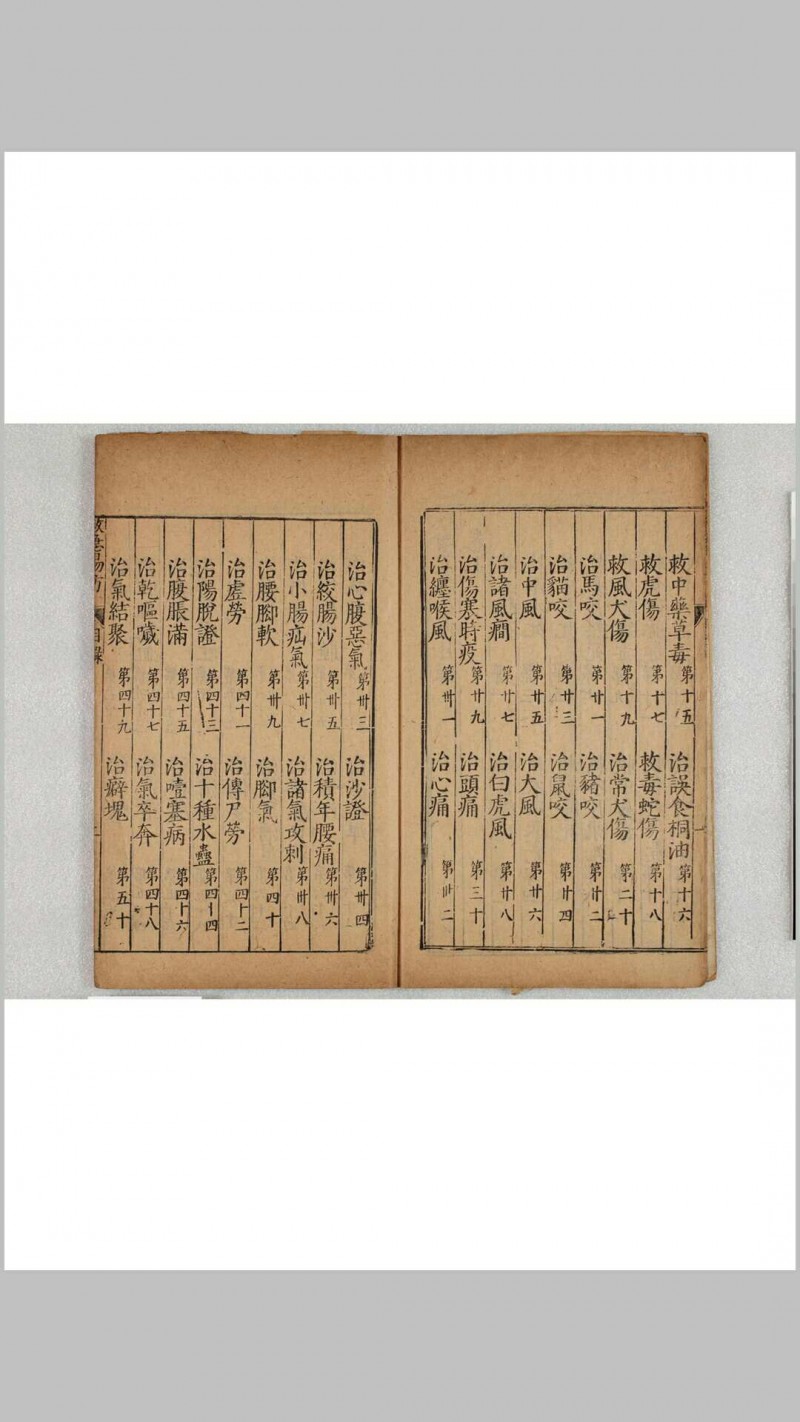 救中藥草毒 第十五 治誤食桐油 第十六
救虎傷 第十七 救毒蛇傷 第十八
救風犬傷 第十九 治常犬傷 第二十
治馬咬 第廿一 治豬咬 第廿二
治貓咬 第廿三 治鼠咬 第廿四
治中風 第廿五 治大風 第廿六
治諸風癇 第廿七 治白虎風 第廿八
治傷寒時疫 第廿九 治頭痛 第三十
治纏喉風 第卅一 治心痛 第卅二
治心腹惡氣 第卅三 治沙證 第卅四
治絞腸沙 第卅五 治積年腰痛 第卅六
治小腸疝氣 第卅七 治諸氣攻刺 第卅八
治腰腳軟 第卅九 治腳氣 第四十
治虛勞 第四十一 治傳尸勞 第四十二
治陽脫證 第四十三 治十種水蠱 第四十四
治腹脹滿 第四十五 治噎塞病 第四十六
治乾嘔噦 第四十七 治氣卒奔 第四十八
治氣結聚 第四十九 治癖塊 第五十
方 目錄